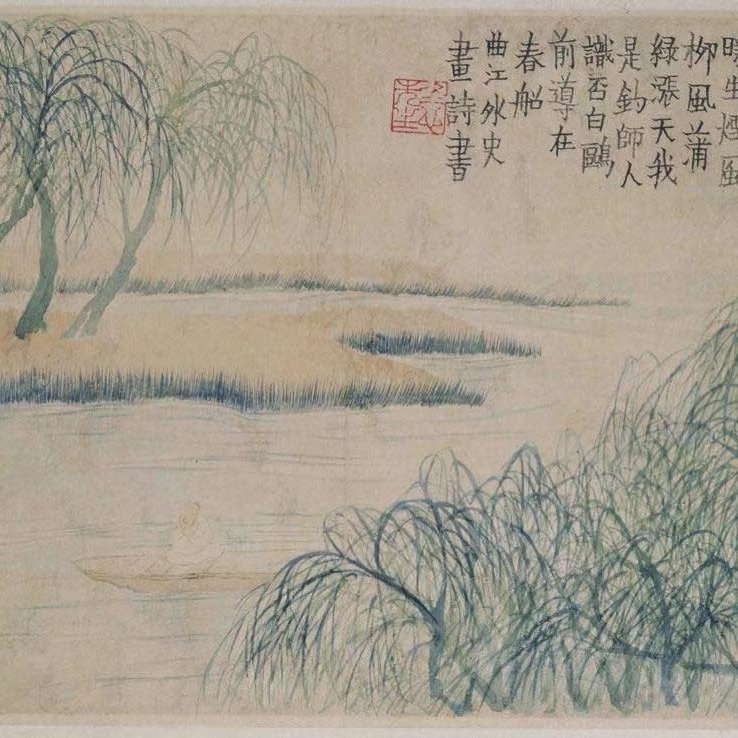 暖生煙風
柳風蒲
綠漲天我
是釣師人
識否白鷗
前導在
春船
曲江外史
畫詩書